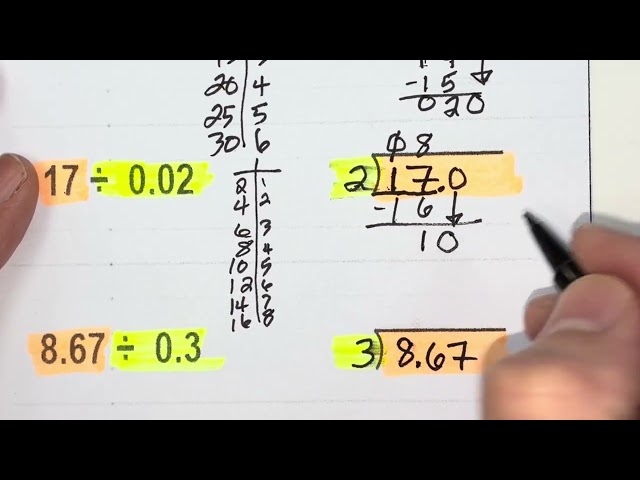 20 4
25 5
30 6
-15
020
17 ÷ 0.02
2 1
4 2
6 3
8 4
10 5
12 6
14 7
16 8
08
2)17.0
-16
10
8.67 ÷ 0.3
3)8.67